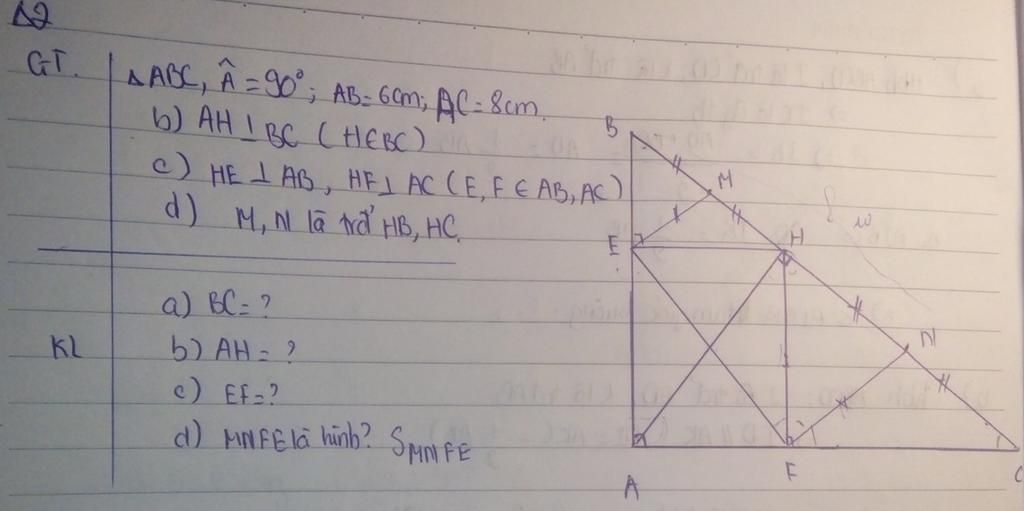 GT.
△ABC, Â = 90°; AB = 6cm; AC = 8cm.
b) AH ⊥ BC (H∈BC)
c) HE ⊥ AB, HF ⊥ AC (E, F ∈ AB, AC)
d) M, N là trđ HB, HC.
KL
a) BC = ?
b) AH = ?
c) EF = ?
d) MNFE là hình? S_MNFE
B
M
E
H
N
A
F
C